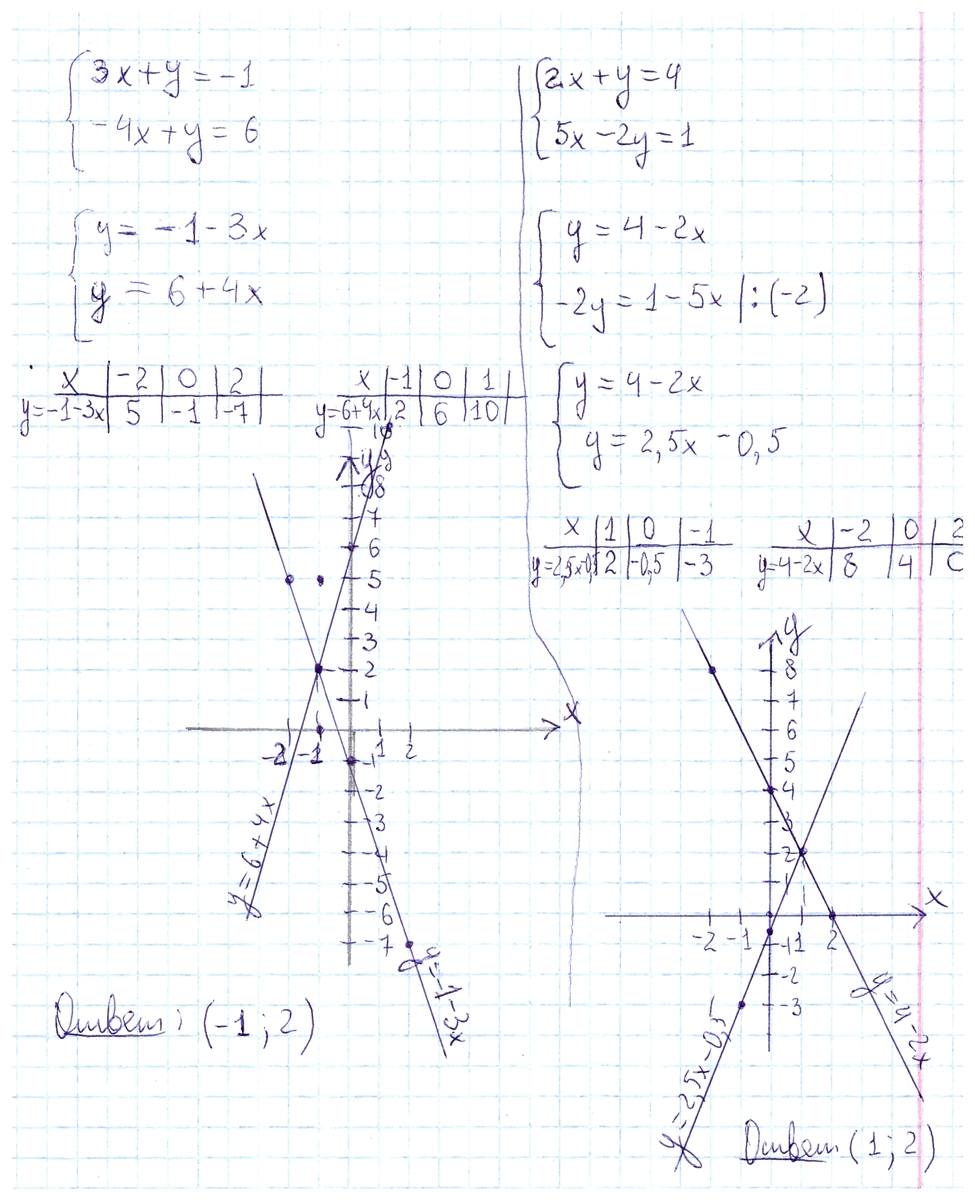 3x+y=-1
-4x+y=6
y=-1-3x
y=6+4x
x | -2 | 0 | 2
y=-1-3x | 5 | -1 | -7
x | -1 | 0 | 1
y=6+4x | 2 | 6 | 10
10
y 9
8
7
6
5
4
3
2
1
x
-2 -1 1 2
-1
-2
-3
-4
-5
-6
-7
y=6+4x
y=-1-3x
Ответ: (-1; 2)
2x+y=4
5x-2y=1
y=4-2x
-2y=1-5x |:(-2)
y=4-2x
y=2,5x-0,5
x | 1 | 0 | -1
y=2,5x-0,5 | 2 | -0,5 | -3
x | -2 | 0 | 2
y=4-2x | 8 | 4 | 0
y
8
7
6
5
4
3
2
1
x
-2 -1 1 2
-1
-2
-3
y=2,5x-0,5
y=4-2x
Ответ (1; 2)